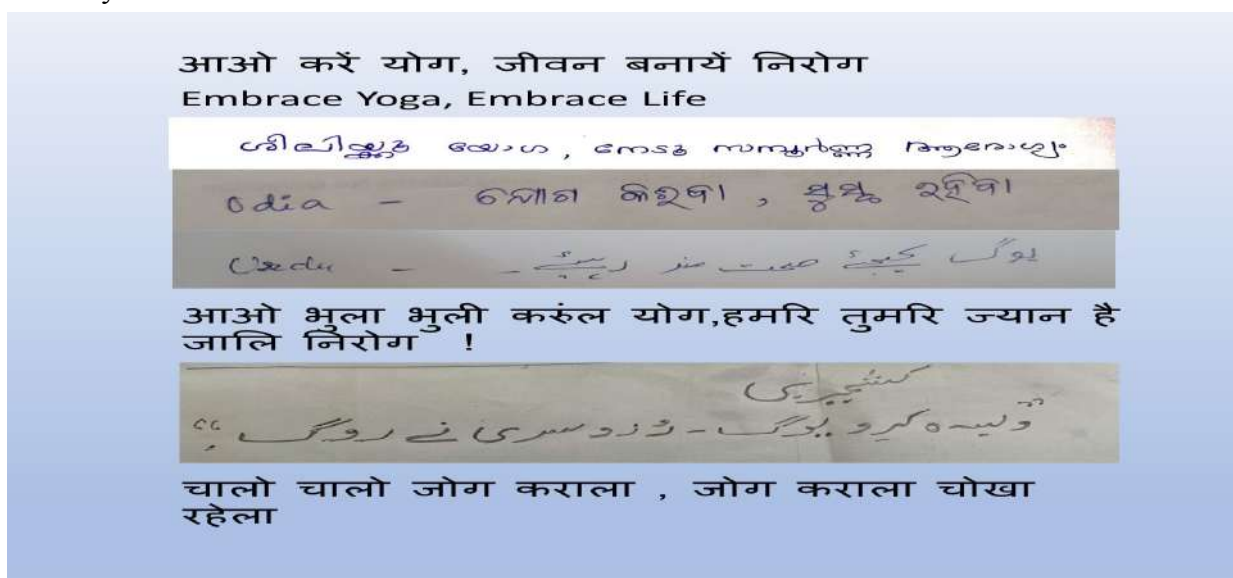 आओ करें योग, जीवन बनायें निरोग
Embrace Yoga, Embrace Life
ശീലിയ്ക്കൂ യോഗ, നേടൂ സമ്പൂർണ്ണ ആരോഗ്യം.
Odia - ଯୋଗ କରିବା, ସୁସ୍ଥ ରହିବା
Urdu - یوگ کیجئے صحت مند رہیئے -
आओ भुला भुली करुंल योग,हमरि तुमरि ज्यान है
जालि निरोग !
یوگ - روگ
चालो चालो जोग कराला , जोग कराला चोखा
रहेला